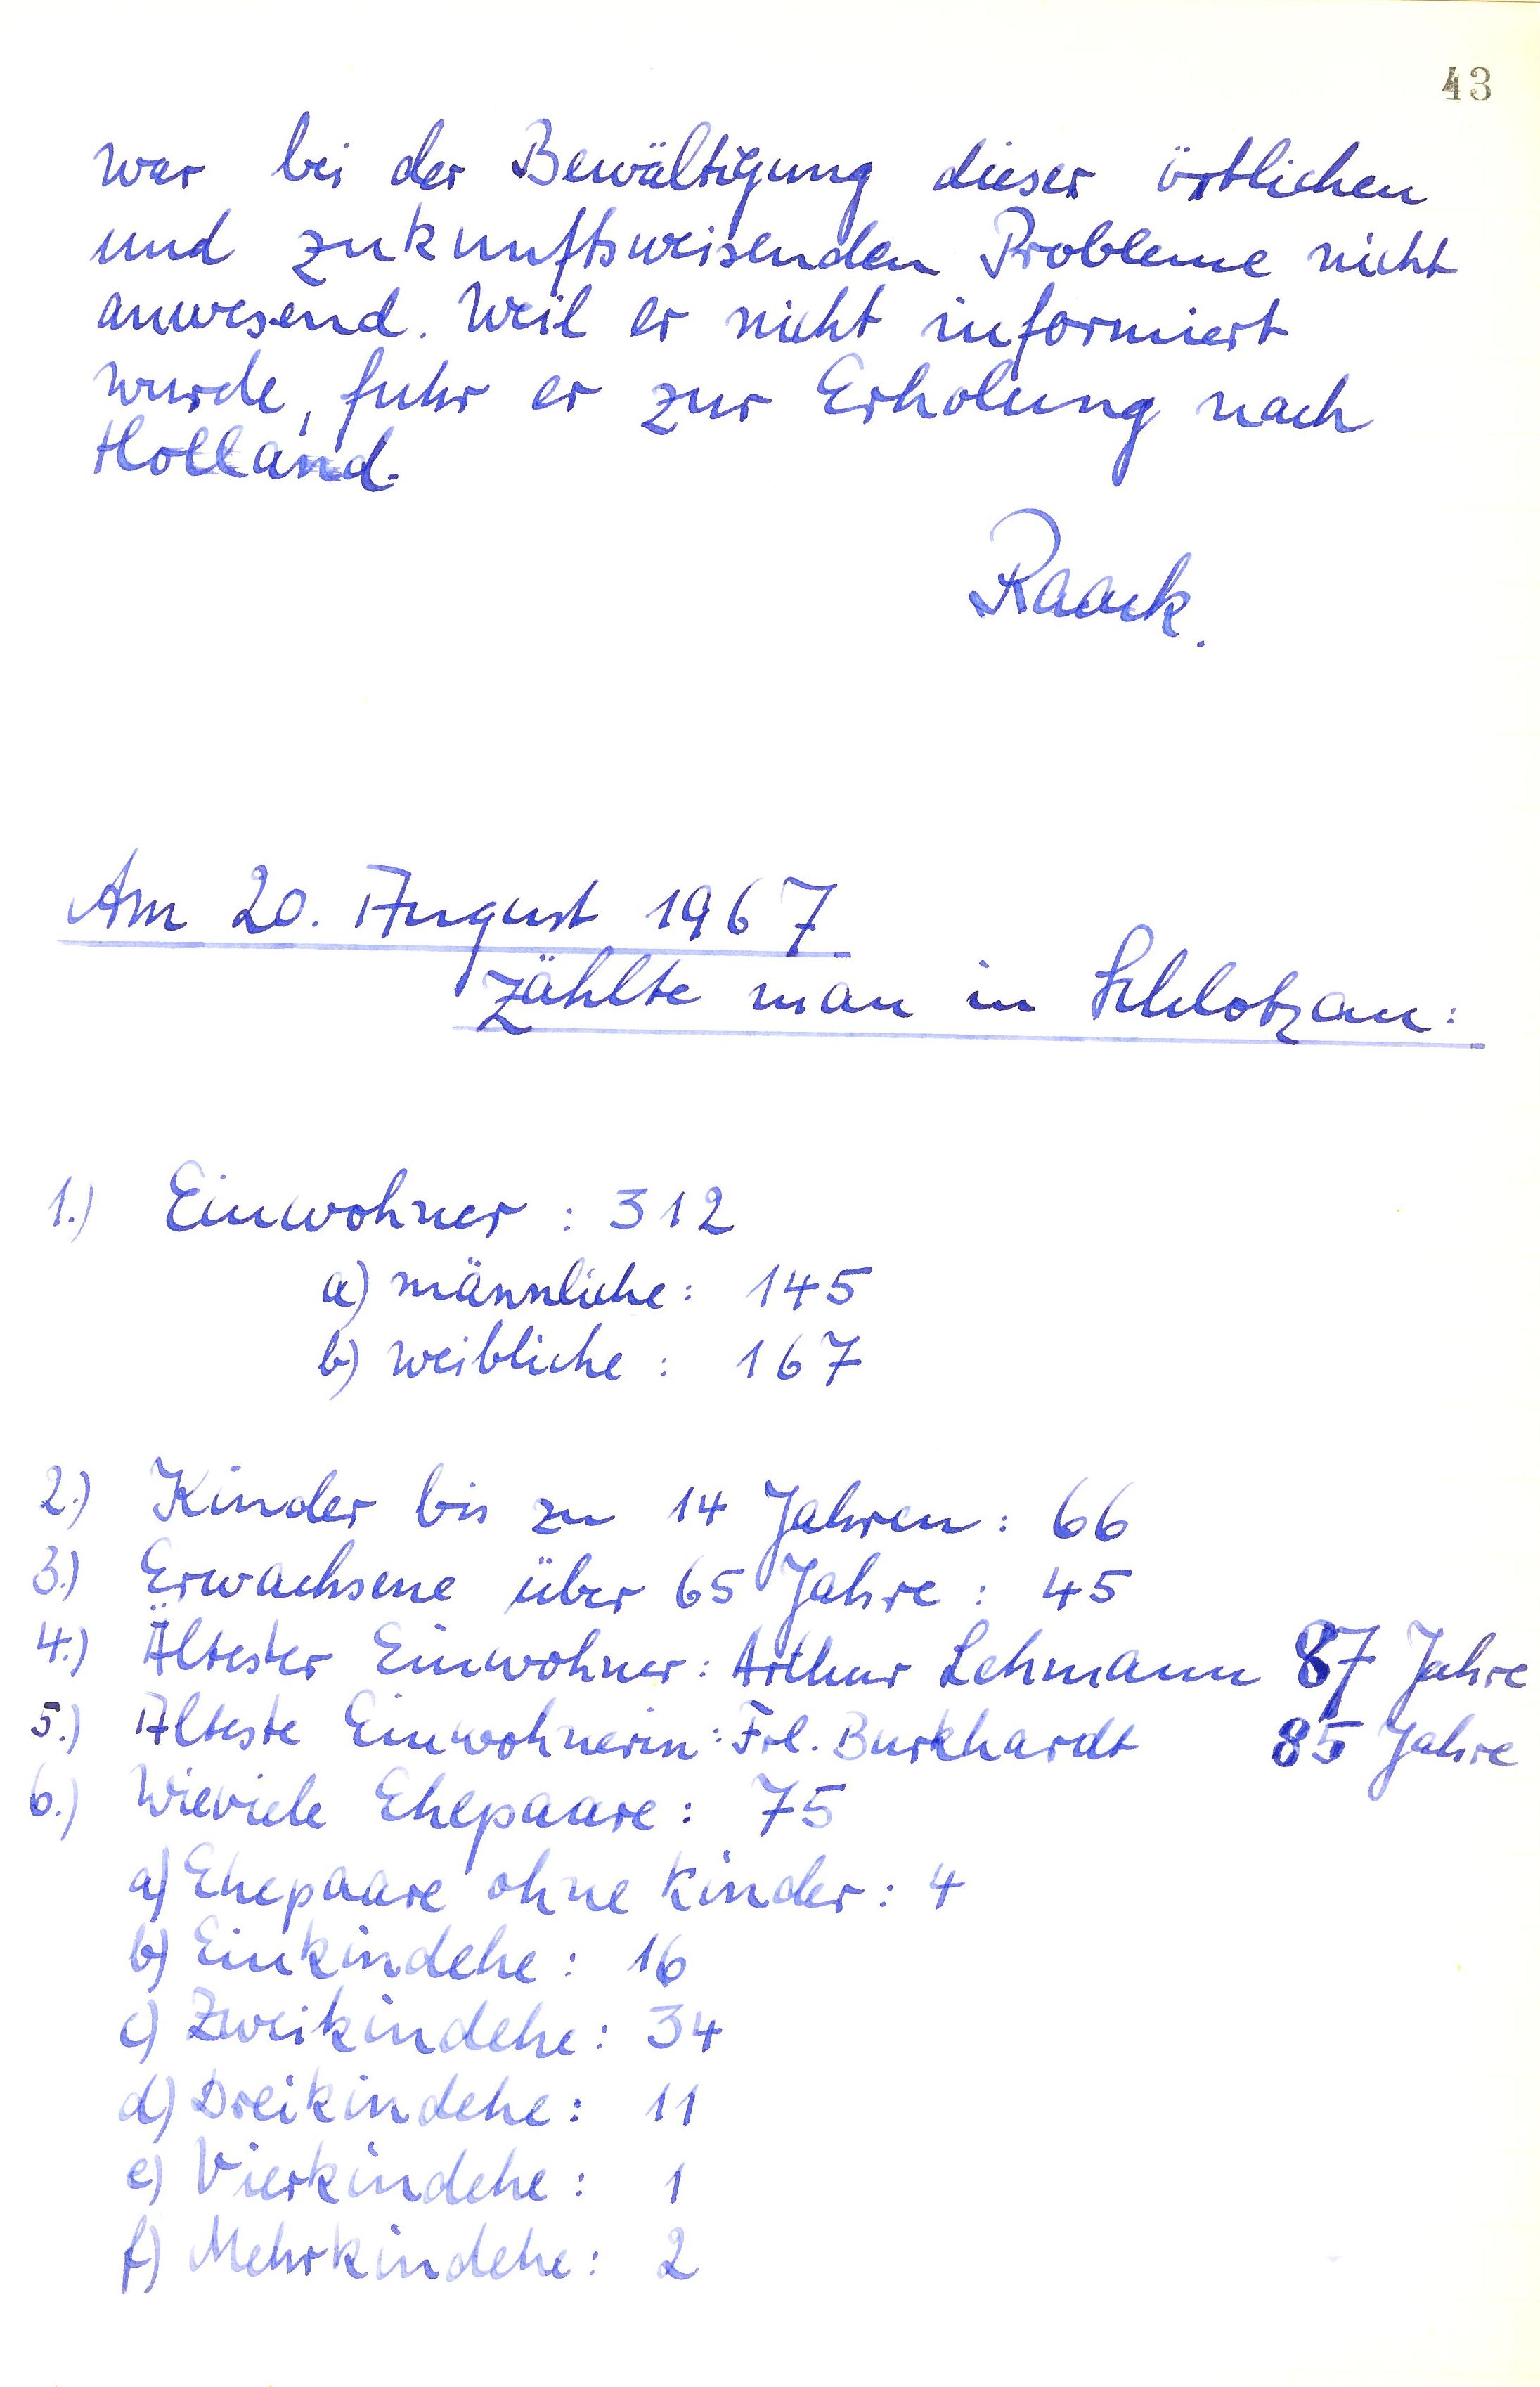 43
war bei der Bewältigung dieser örtlichen
und zukunftsweisenden Probleme nicht
anwesend. Weil er nicht informiert
wurde, fuhr er zur Erholung nach
Holland.
Raack.
Am 20. August 1967
zählte man in Schlotzau:
1.) Einwohner : 312
a) männliche : 145
b) weibliche : 167
2.) Kinder bis zu 14 Jahren : 66
3.) Erwachsene über 65 Jahre : 45
4.) Ältester Einwohner : Arthur Lehmann 87 Jahre
5.) Älteste Einwohnerin : Frl. Burkhardt 85 Jahre
6.) Wieviele Ehepaare : 75
a) Ehepaare ohne Kinder : 4
b) Einkindehe : 16
c) Zweikindehe : 34
d) Dreikindehe : 11
e) Vierkindehe : 1
f) Mehrkindehe : 2